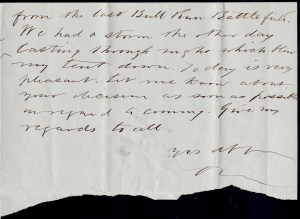 from the last Bull Run Battlefield.
We had a storm the other day
lasting through night which blew
my tent down. Today is very
pleasant. Let me know about
your decision as soon as possible
in regard to coming. Give my
regards to all
Yrs